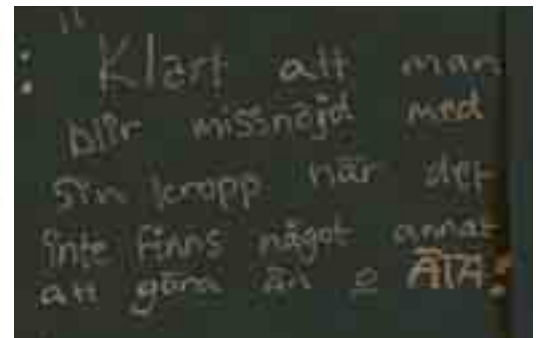 "
: Klart att man
blir missnöjd med
sin kropp när det
inte finns något annat
att göra än o ÄTA!